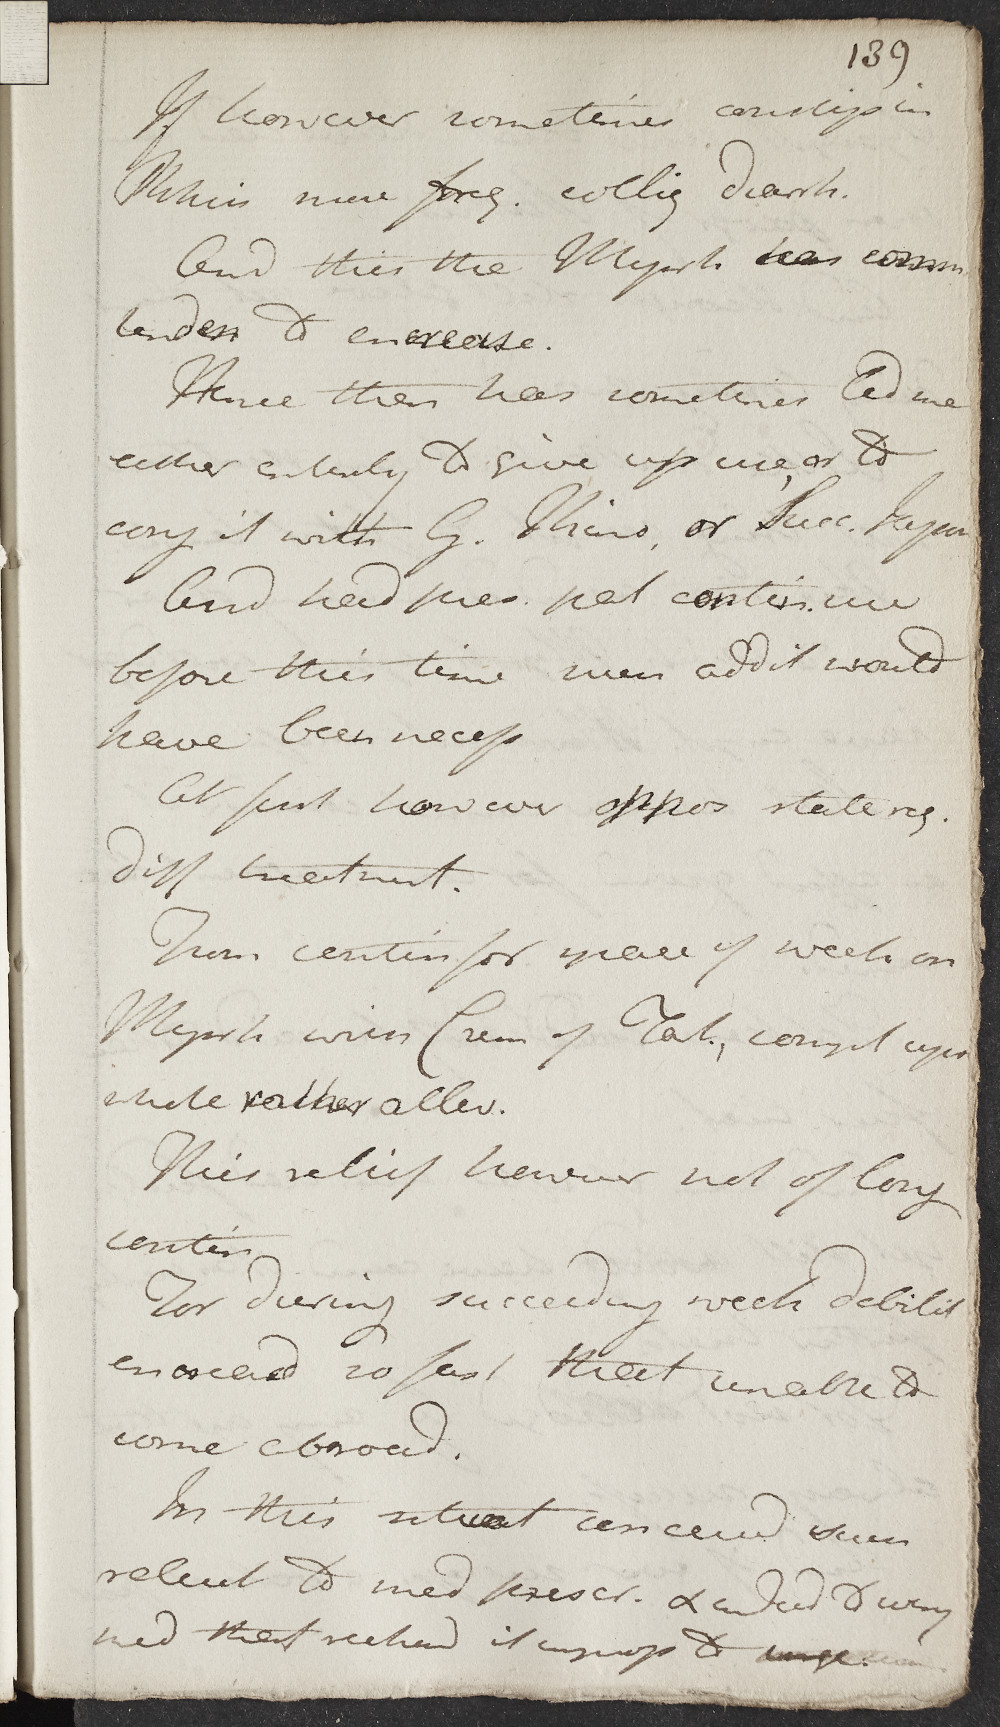 139
If however sometimes constip in
Phthisis more freq. colliq diarrh.
And this the Myrrh has comm
tenden to encrease.
Hence then has sometimes led me
either entirely to give up use, or to
conj it with G. Kino, or Succ. Japon
And had pres. pat contin. use
before this time such addit would
have been necess
At first however oppos state req.
diff treatment.
From contin for space of week on
Myrrh with Crem of Tart., compl upon
whole rather allev.
This relief however not of long
contin
For during succeeding week debilit
encreased so fast that unable to
come abroad.
In this situat conceived such
reluct to med prescr. & indeed to every
med that reckond it improp to urge